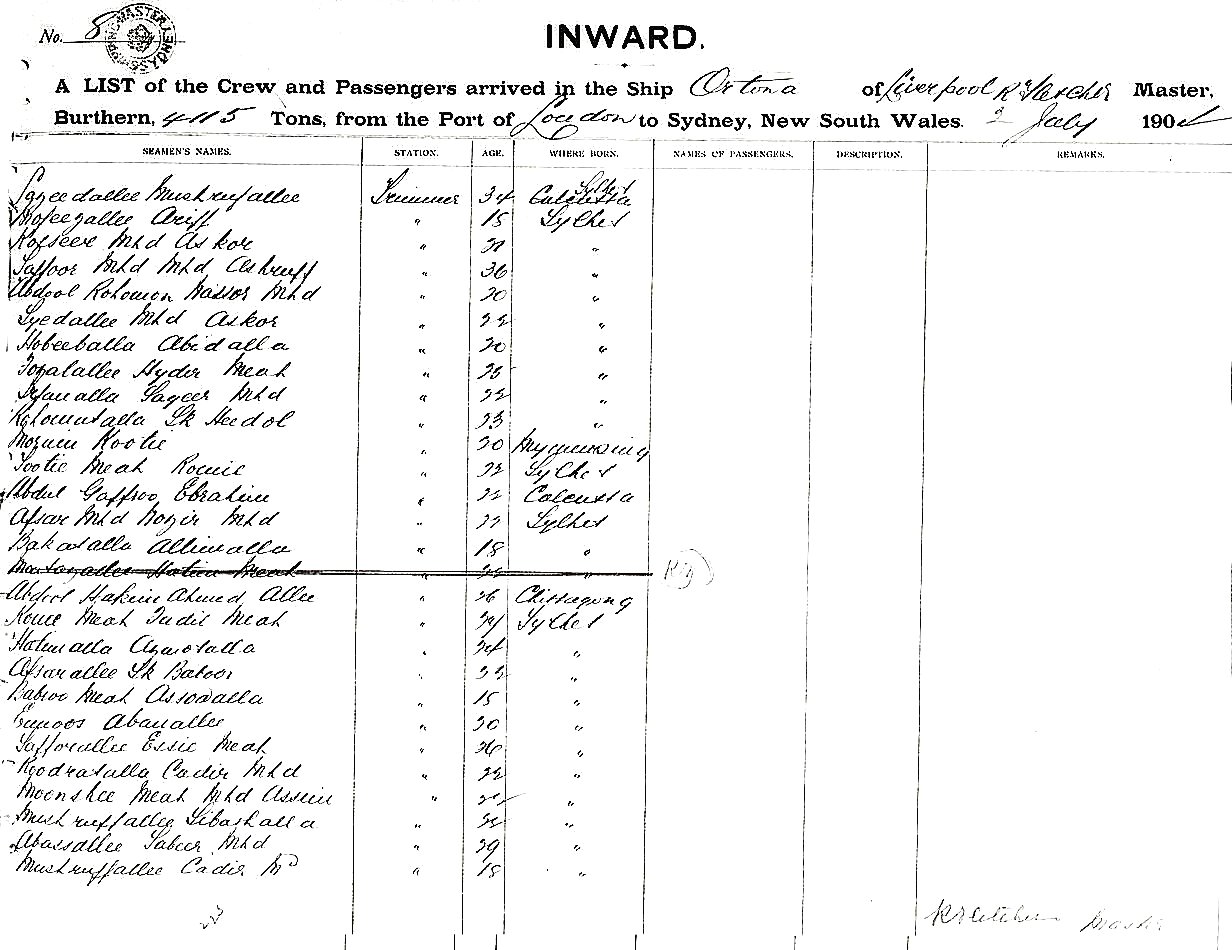 No. 8
SHIPPING MASTER SYDNEY
INWARD.
A LIST of the Crew and Passengers arrived in the Ship Ortona of Liverpool R Fletcher Master,
Burthern, 4115 Tons, from the Port of London to Sydney, New South Wales. 2 July 190
SEAMEN'S NAMES. STATION. AGE. WHERE BORN. NAMES OF PASSENGERS. DESCRIPTION. REMARKS.
Sylhet
Syeedallee Mushrufallee Trimmer 34 Calcutta
Mofeezallee Ariff " 18 Sylhet
Mhd Askor " "
Gaffoor Mhd Mhd Ashruff " 36 "
Abdool Rohomon Nassor Mhd " 20 "
Syedallee Mhd Askor " 22 "
Hobeeballa Abidalla " 20 "
Hyder Meah " 25 "
Sageer Mhd " 22 "
Rohomutalla Sk Heedol " 23 "
Kootie " 20 Mymensing
Tootie Meah Romie " 22 Sylhet
Abdul Gaffroo Ebrahim " 22 Calcutta
Afsar Mhd Nozir Mhd " 22 Sylhet
Bakatalla Allimalla " 18 "
Hatim Meah " 22 "
Abdool Hakim Ahmed Allee " 26 Chittagong
Romie Meah Tudil Meah " Sylhet
Hatimalla Azmotalla " 24 "
Afsarallee Sk Baboor " 22 "
Babroo Meah Assodalla " 15 "
Eunoos Abanallee " 20 "
Gafforallee Essie Meah " 26 "
Koodratalla Cadir Mhd " 22 "
Moonshee Meah Mhd Assim " "
Mushruffallee Sibashalla " "
Abassallee Saber Mhd " 29 "
Mushruffallee Cadir Md " 18 "
R Fletcher Master